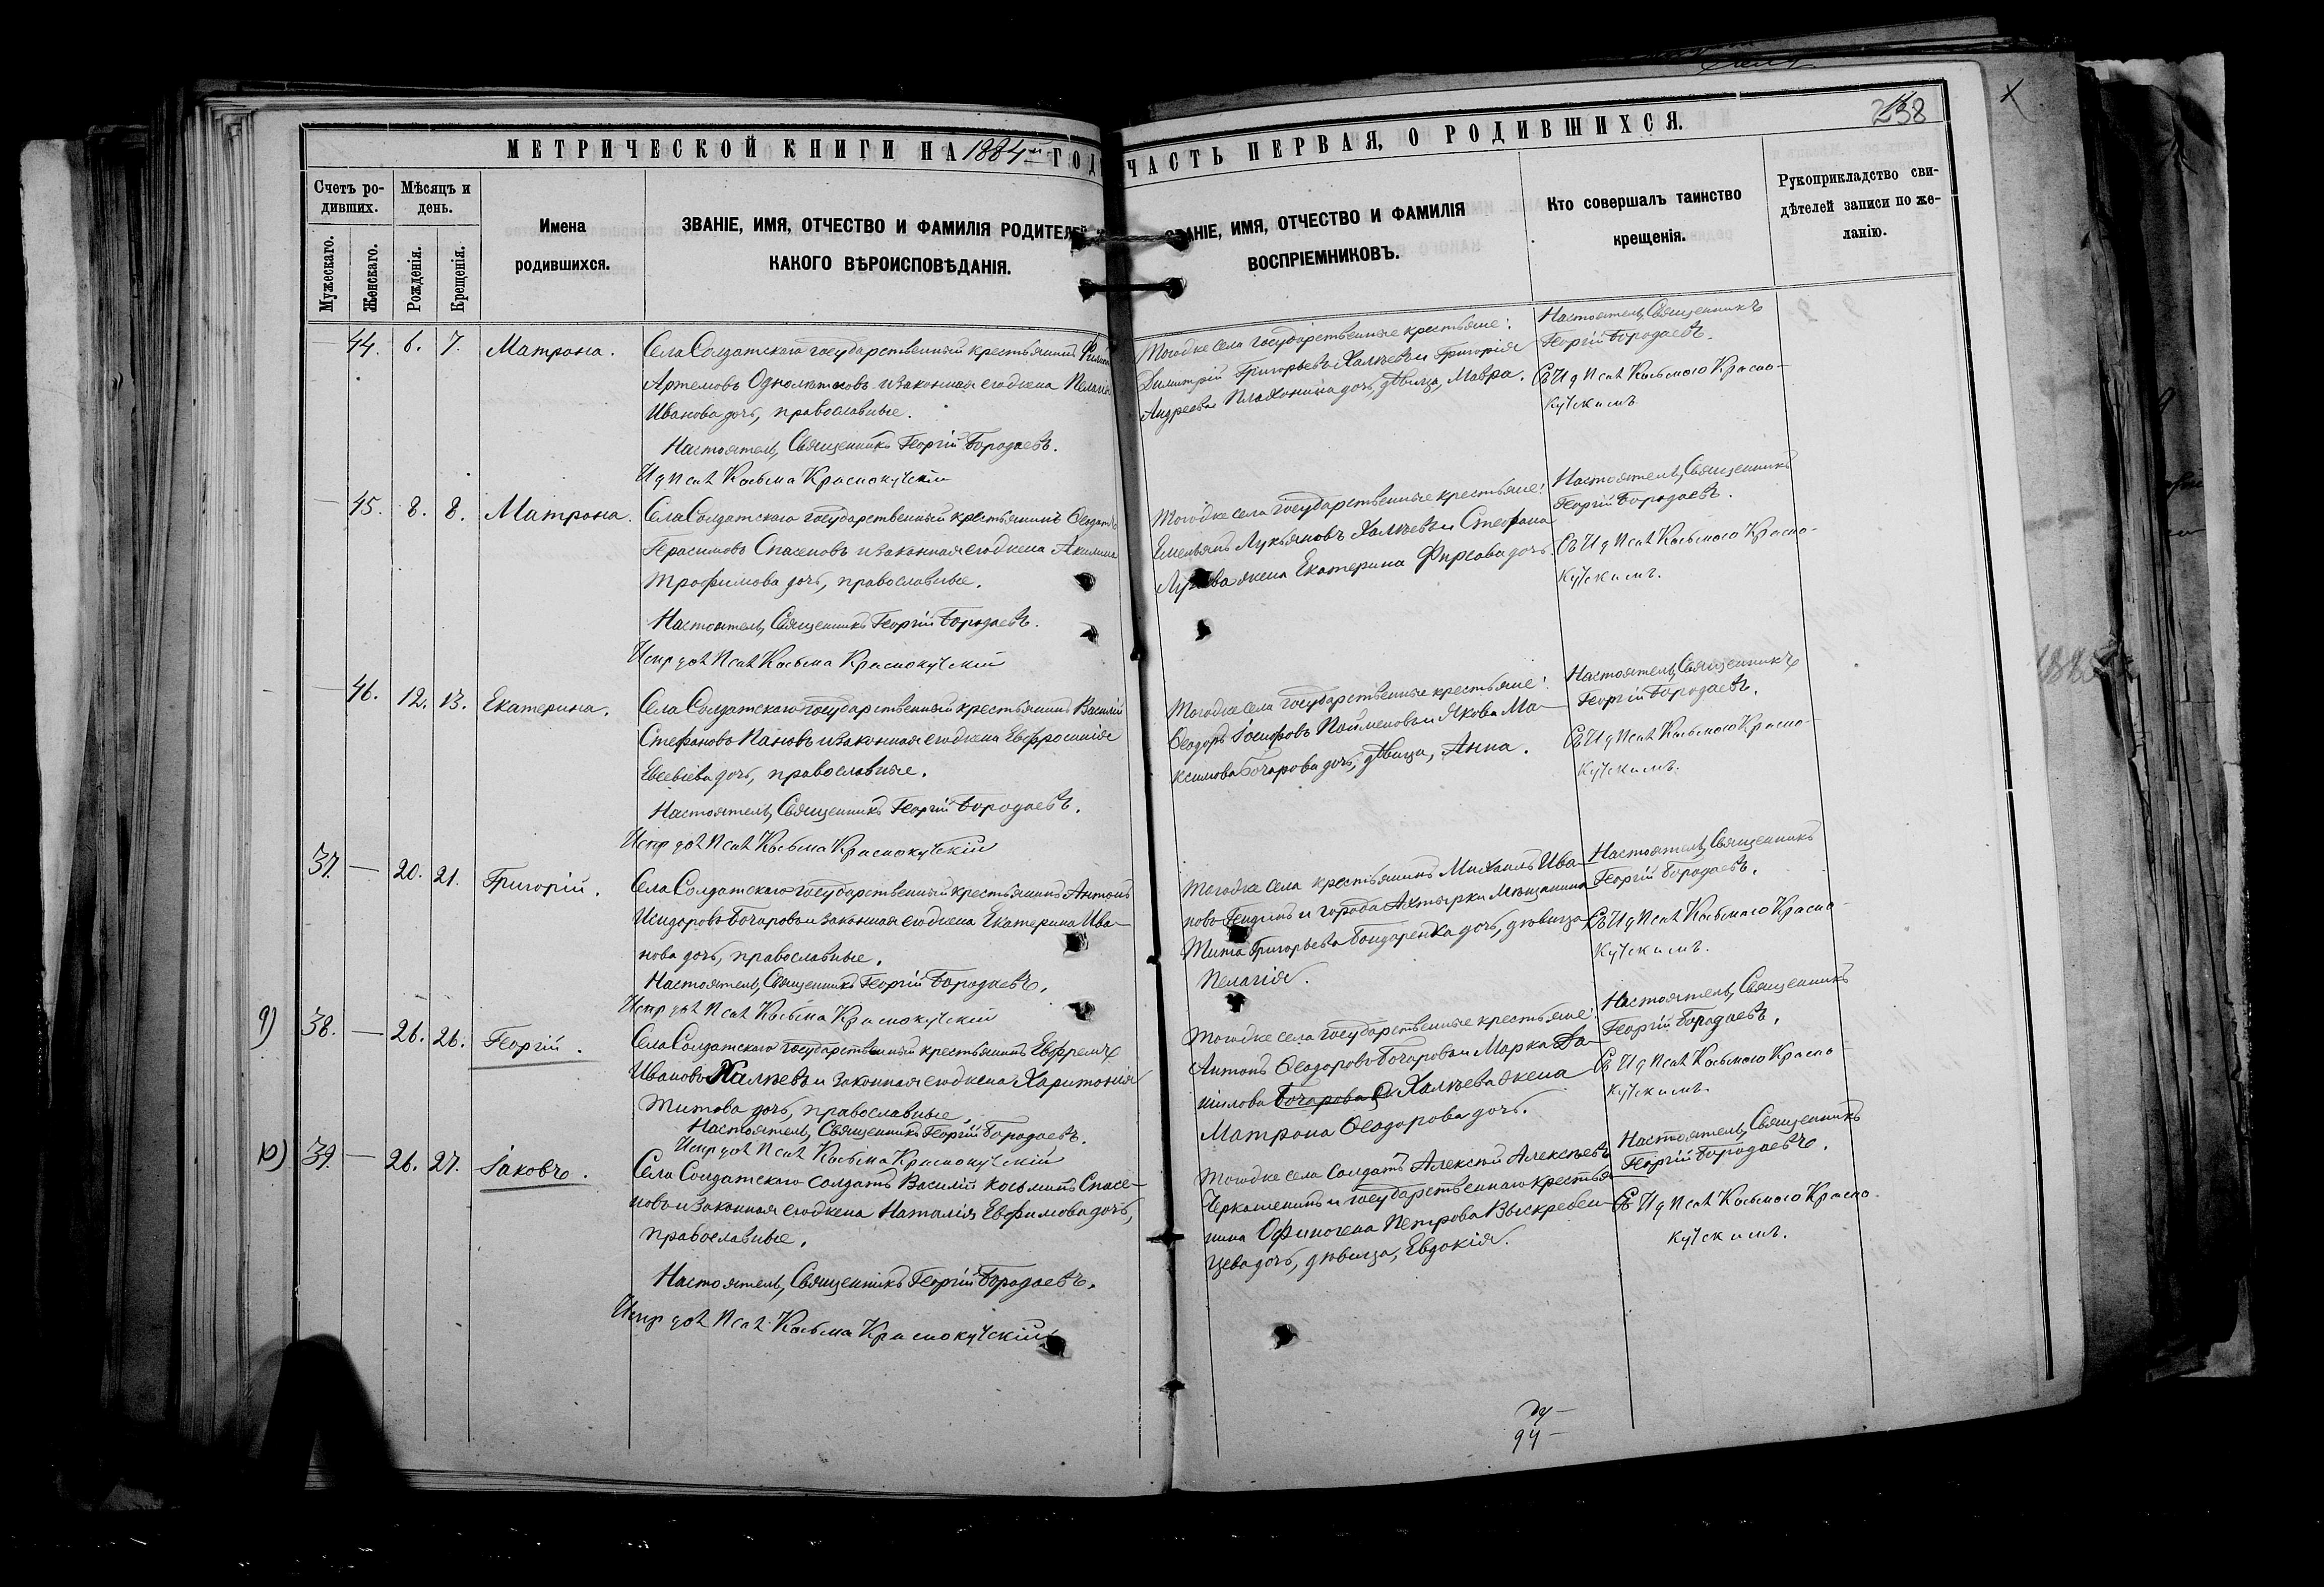 МЕТРИЧЕСКОЙ КНИГИ НА 1884й ГОДЪ ЧАСТЬ ПЕРВАЯ, О РОДИВШИХСЯ.
238
Счетъ ро-
дившихъ.
Мужескаго.
Женскаго.
Мѣсяцъ и
день.
Рожденія.
Крещенія.
Имена
родившихся.
ЗВАНІЕ, ИМЯ, ОТЧЕСТВО И ФАМИЛІЯ РОДИТЕЛЕЙ
КАКОГО ВѢРОИСПОВѢДАНІЯ.
ЗВАНІЕ, ИМЯ, ОТЧЕСТВО И ФАМИЛІЯ
ВОСПРІЕМНИКОВЪ.
Кто совершалъ таинство
крещенія.
Рукоприкладство сви-
дѣтелей записи по же-
ланію.
44. 6. 7. Матрона.
Села Солдатскаго государственный крестьянинъ
Артемовъ и законная его жена Пелагія
Иванова дочь, православные.
Настоятель, Священникъ Георгій Бородаевъ.
И д Псал Косьма Краснокутскій
Тогоже села государственные крестьяне:
Димитрій Григорьевъ Халѣевъ и Григорія
Андреева дочь, дѣвица, Мавра.
Настоятель, Священникъ
Георгій Бородаевъ.
Съ И д Псал Косьмою Красно-
кутскимъ
— 45. 8. 8. Матрона.
Села Солдатскаго государственный крестьянинъ
Герасимовъ Спасеновъ и законная его жена Акилина
Трофимова дочь, православные.
Настоятель, Священникъ Георгій Бородаевъ.
Испр дол Псал Косьма Краснокутскій
Тогоже села государственные крестьяне:
Емельянъ Лукьяновъ Халѣевъ и Стефана
жена Екатерина Фирсова дочь.
Настоятель, Священникъ
Георгій Бородаевъ.
Съ И д Псал Косьмою Красно-
кутскимъ.
— 46. 12. 13. Екатерина.
Села Солдатскаго государственный крестьянинъ Василій
Стефановъ Пановъ и законная его жена Евфросинія
Евсевіева дочь, православные.
Настоятель, Священникъ Георгій Бородаевъ.
Испр дол Псал Косьма Краснокутскій
Тогоже села государственные крестьяне:
Ѳеодоръ Іосифовъ Пойменовъ и Якова Ма-
ксимова Бочарова дочь, дѣвица, Анна.
Настоятель, Священникъ
Георгій Бородаевъ.
Съ И д Псал Косьмою Красно-
кутскимъ.
37. — 20. 21. Григорій.
Села Солдатскаго государственный крестьянинъ Антонъ
Исидоровъ Бочаровъ и законная его жена Екатерина Ива-
нова дочь, православные.
Настоятель, Священникъ Георгій Бородаевъ.
Испр дол Псал Косьма Краснокутскій
Тогоже села крестьянинъ Михаилъ Ива-
новъ и города Ахтырки мѣщанина
Тита Григорьева Бондаренка дочь, дѣвица
Пелагія.
Настоятель, Священникъ
Георгій Бородаевъ.
Съ И д Псал Косьмою Красно-
кутскимъ.
9) 38. — 26. 26. Георгій.
Села Солдатскаго государственный крестьянинъ Евфремъ
Ивановъ Халѣевъ и законная его жена Харитонія
Титова дочь, православные.
Настоятель, Священникъ Георгій Бородаевъ.
Испр дол Псал Косьма Краснокутскій
Тогоже села государственные крестьяне:
Антонъ Ѳеодоровъ Бочаровъ и Марка Да-
ніилова Бочарова Халѣева жена
Матрона Ѳеодорова дочь.
Настоятель, Священникъ
Георгій Бородаевъ.
Съ И д Псал Косьмою Красно
кутскимъ.
10) 39. — 26. 27. Іаковъ.
Села Солдатскаго солдатъ Василій Косьминъ Спасе-
новъ и законная его жена Наталія Евфимова дочь,
православные.
Настоятель, Священникъ Георгій Бородаевъ.
Испр дол Псал Косьма Краснокутскій
Тогоже села солдатъ Алексѣй Алексѣевъ
Черкашенинъ и государственнаго крестья
нина Офиногена Петрова Выскребен-
цева дочь, дѣвица, Евдокія.
Настоятель, Священникъ
Георгій Бородаевъ.
Съ И д Псал Косьмою Красно-
кутскимъ.